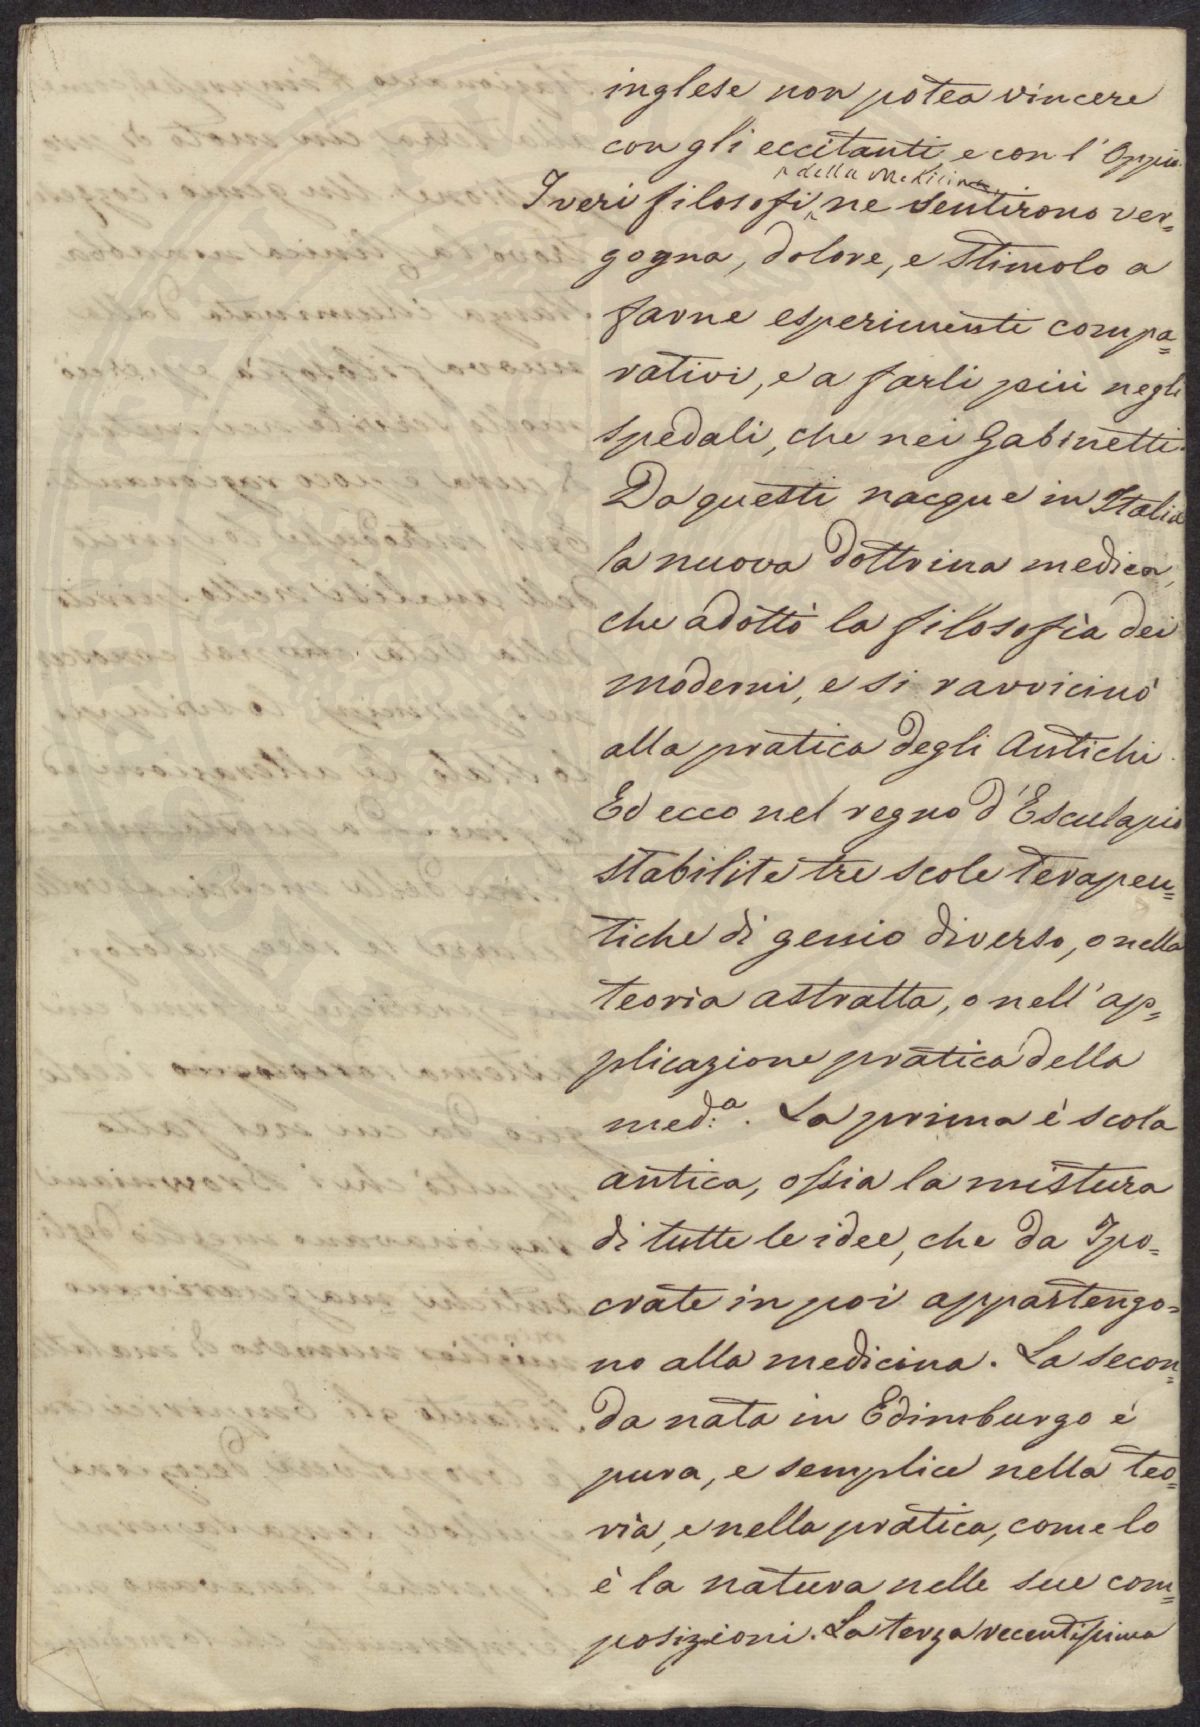 inglese non potea vincere
con gli eccitanti e con l' Oppio.
della Medicina
I veri filosofi ne sentirono ver=
gogna, dolore, e stimolo a
farne esperimenti compa=
rativi, e a farli più negli
spedali, che nei Gabinetti.
Da questi nacque in Italia
la nuova dottrina medica,
che adottò la filosofia dei
moderni, e si ravvicinò
alla pratica degli Antichi.
Ed ecco nel regno d'Esculapio
stabilite tre scole terapeu=
tiche di genio diverso, o nella
teoria astratta, o nell' ap=
plicazione pratica della
med:ª. La prima è scola
antica, ossia la mistura
di tutte le idee, che da Ipo=
crate in poi appartengo=
no alla medicina. La secon=
da nata in Edimburgo è
pura, e semplice nella teo=
ria, e nella pratica, come lo
è la natura nelle sue com=
posizioni. La terza recentissima